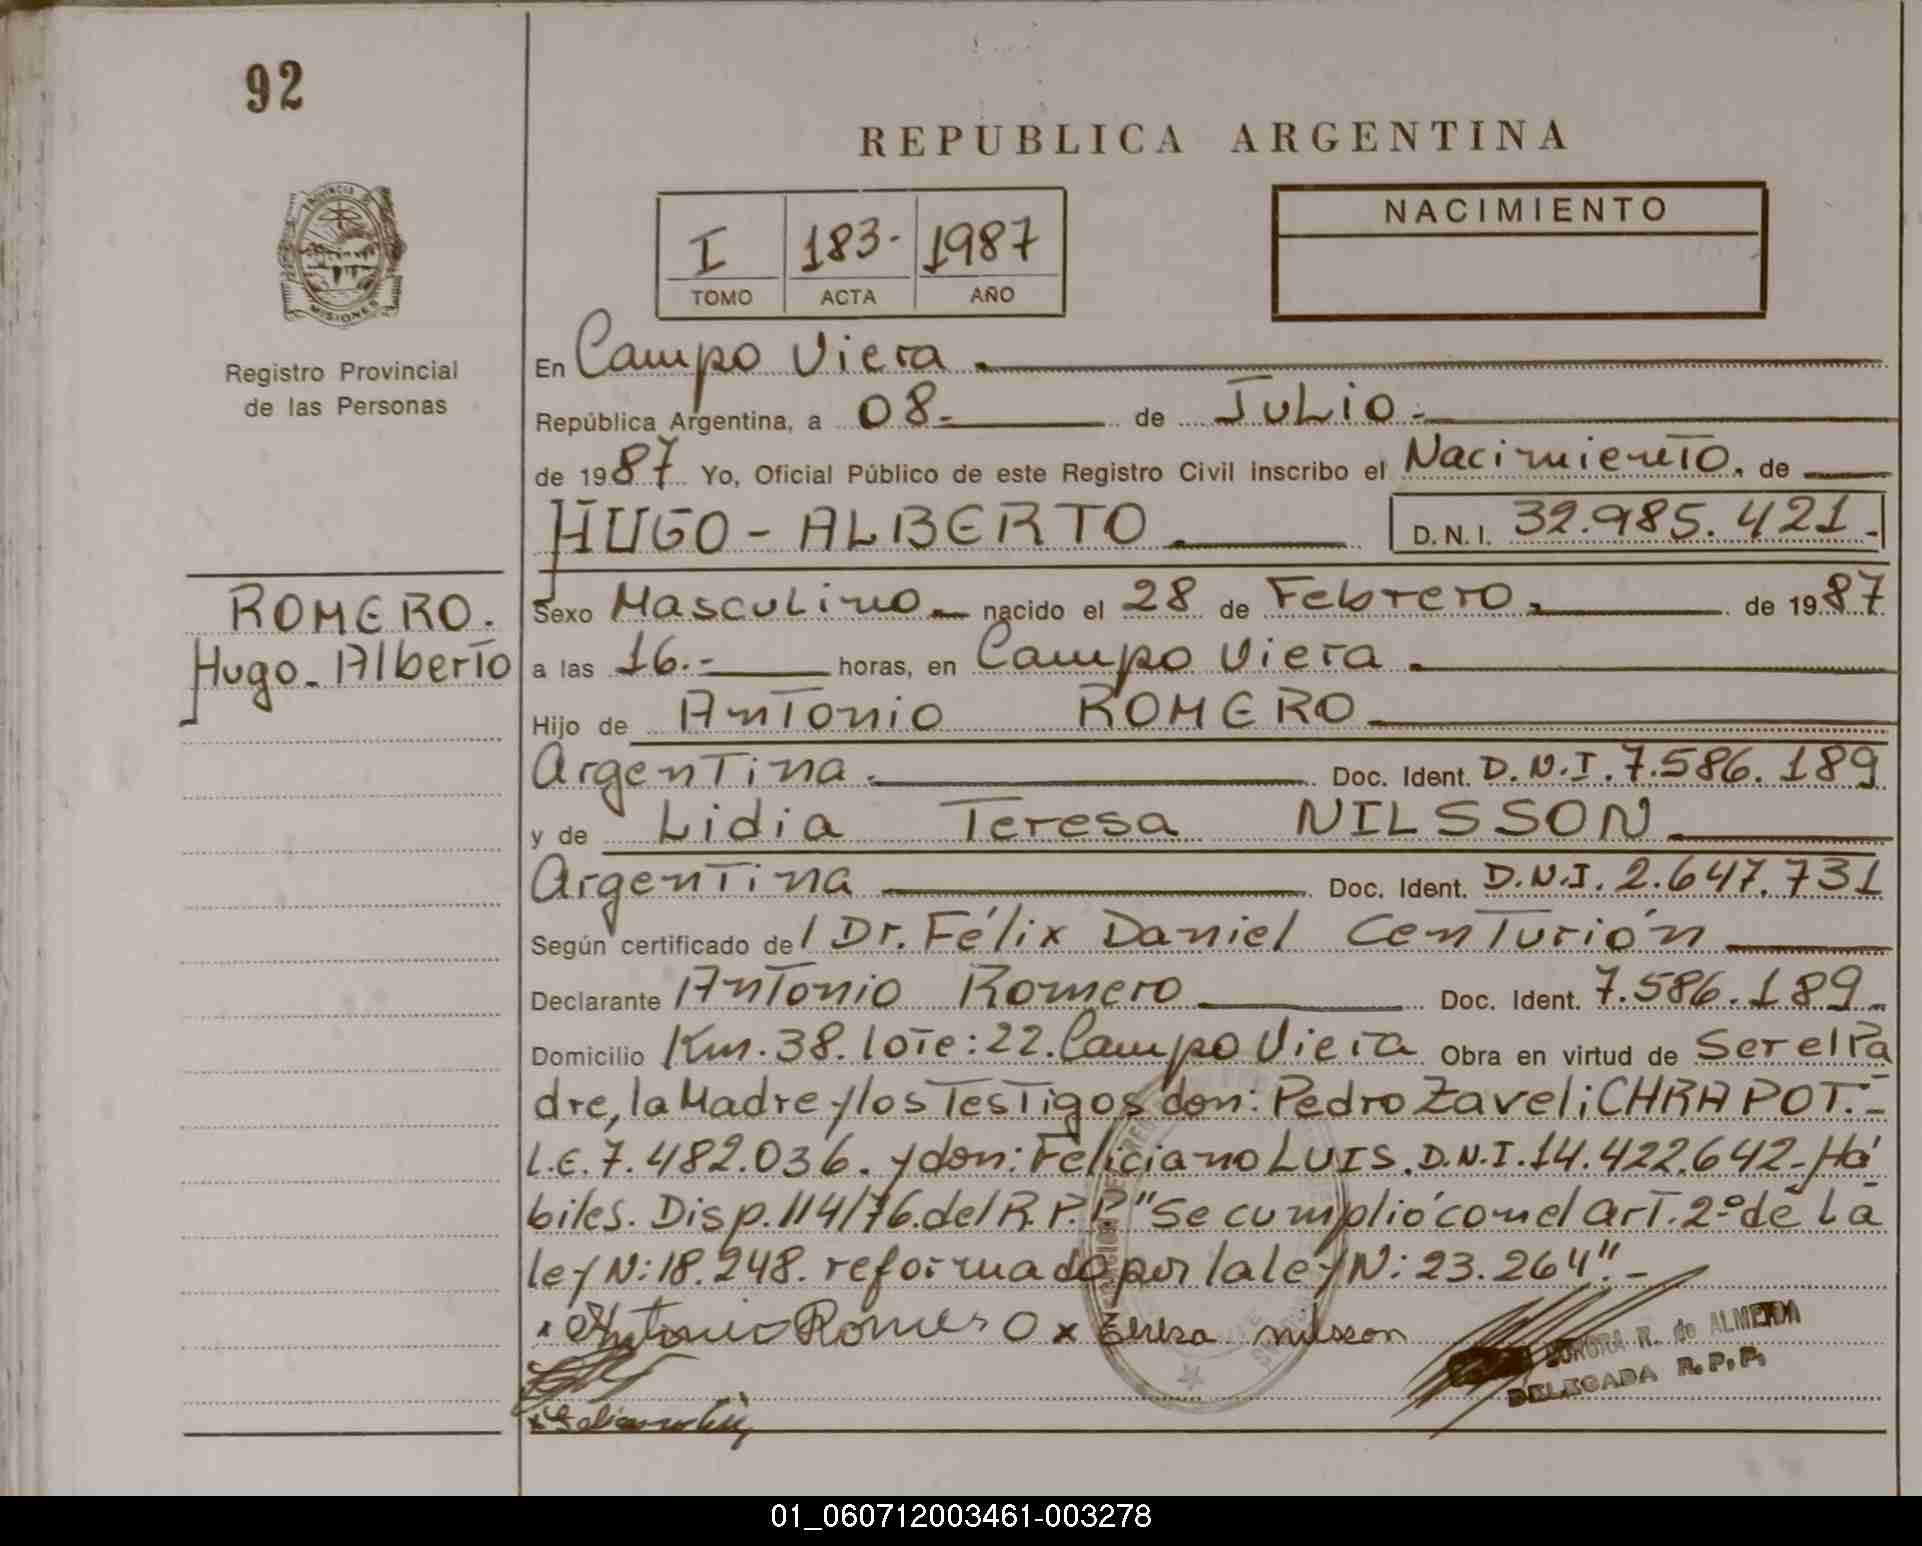 92
REPUBLICA ARGENTINA
NACIMIENTO
I 183- 1987
TOMO ACTA AÑO
PROVINCIA DE MISIONES
Registro Provincial
de las Personas
En Campo Viera.
República Argentina, a 08- de JULIO.-
de 1987 Yo, Oficial Público de este Registro Civil inscribo el Nacimiento. de
HUGO - ALBERTO. D.N.I. 32.985.421-
ROMERO.
Hugo-Alberto
Sexo Masculino nacido el 28 de Febrero, de 1987
a las 16.- horas, en Campo Viera.
Hijo de Antonio ROMERO
Argentina. Doc. Ident. D.N.I. 7.586.189
y de Lidia Teresa NILSSON.
Argentina Doc. Ident. D.N.I. 2.647.731
Según certificado de/ Dr. Félix Daniel Centurión
Declarante Antonio Romero Doc. Ident. 7.586.189-
Domicilio Km. 38. lote: 22. Campo Viera Obra en virtud de Ser el Pa
dre, la Madre y los Testigos don: Pedro Zaveli; CHRAPOT.-
L.E. 7.482.036. y don: Feliciano LUIS. D.N.I. 14.422.642- Há
biles. Disp. 114/76. del R.P.P. "Se cumplió con el art. 2º de la
ley N: 18.248. reformado por la ley N: 23.264".-
x Antonio Romero x teresa nilsson
R. de ALMEIDA
DELEGADA R.P.P.
01_060712003461-003278